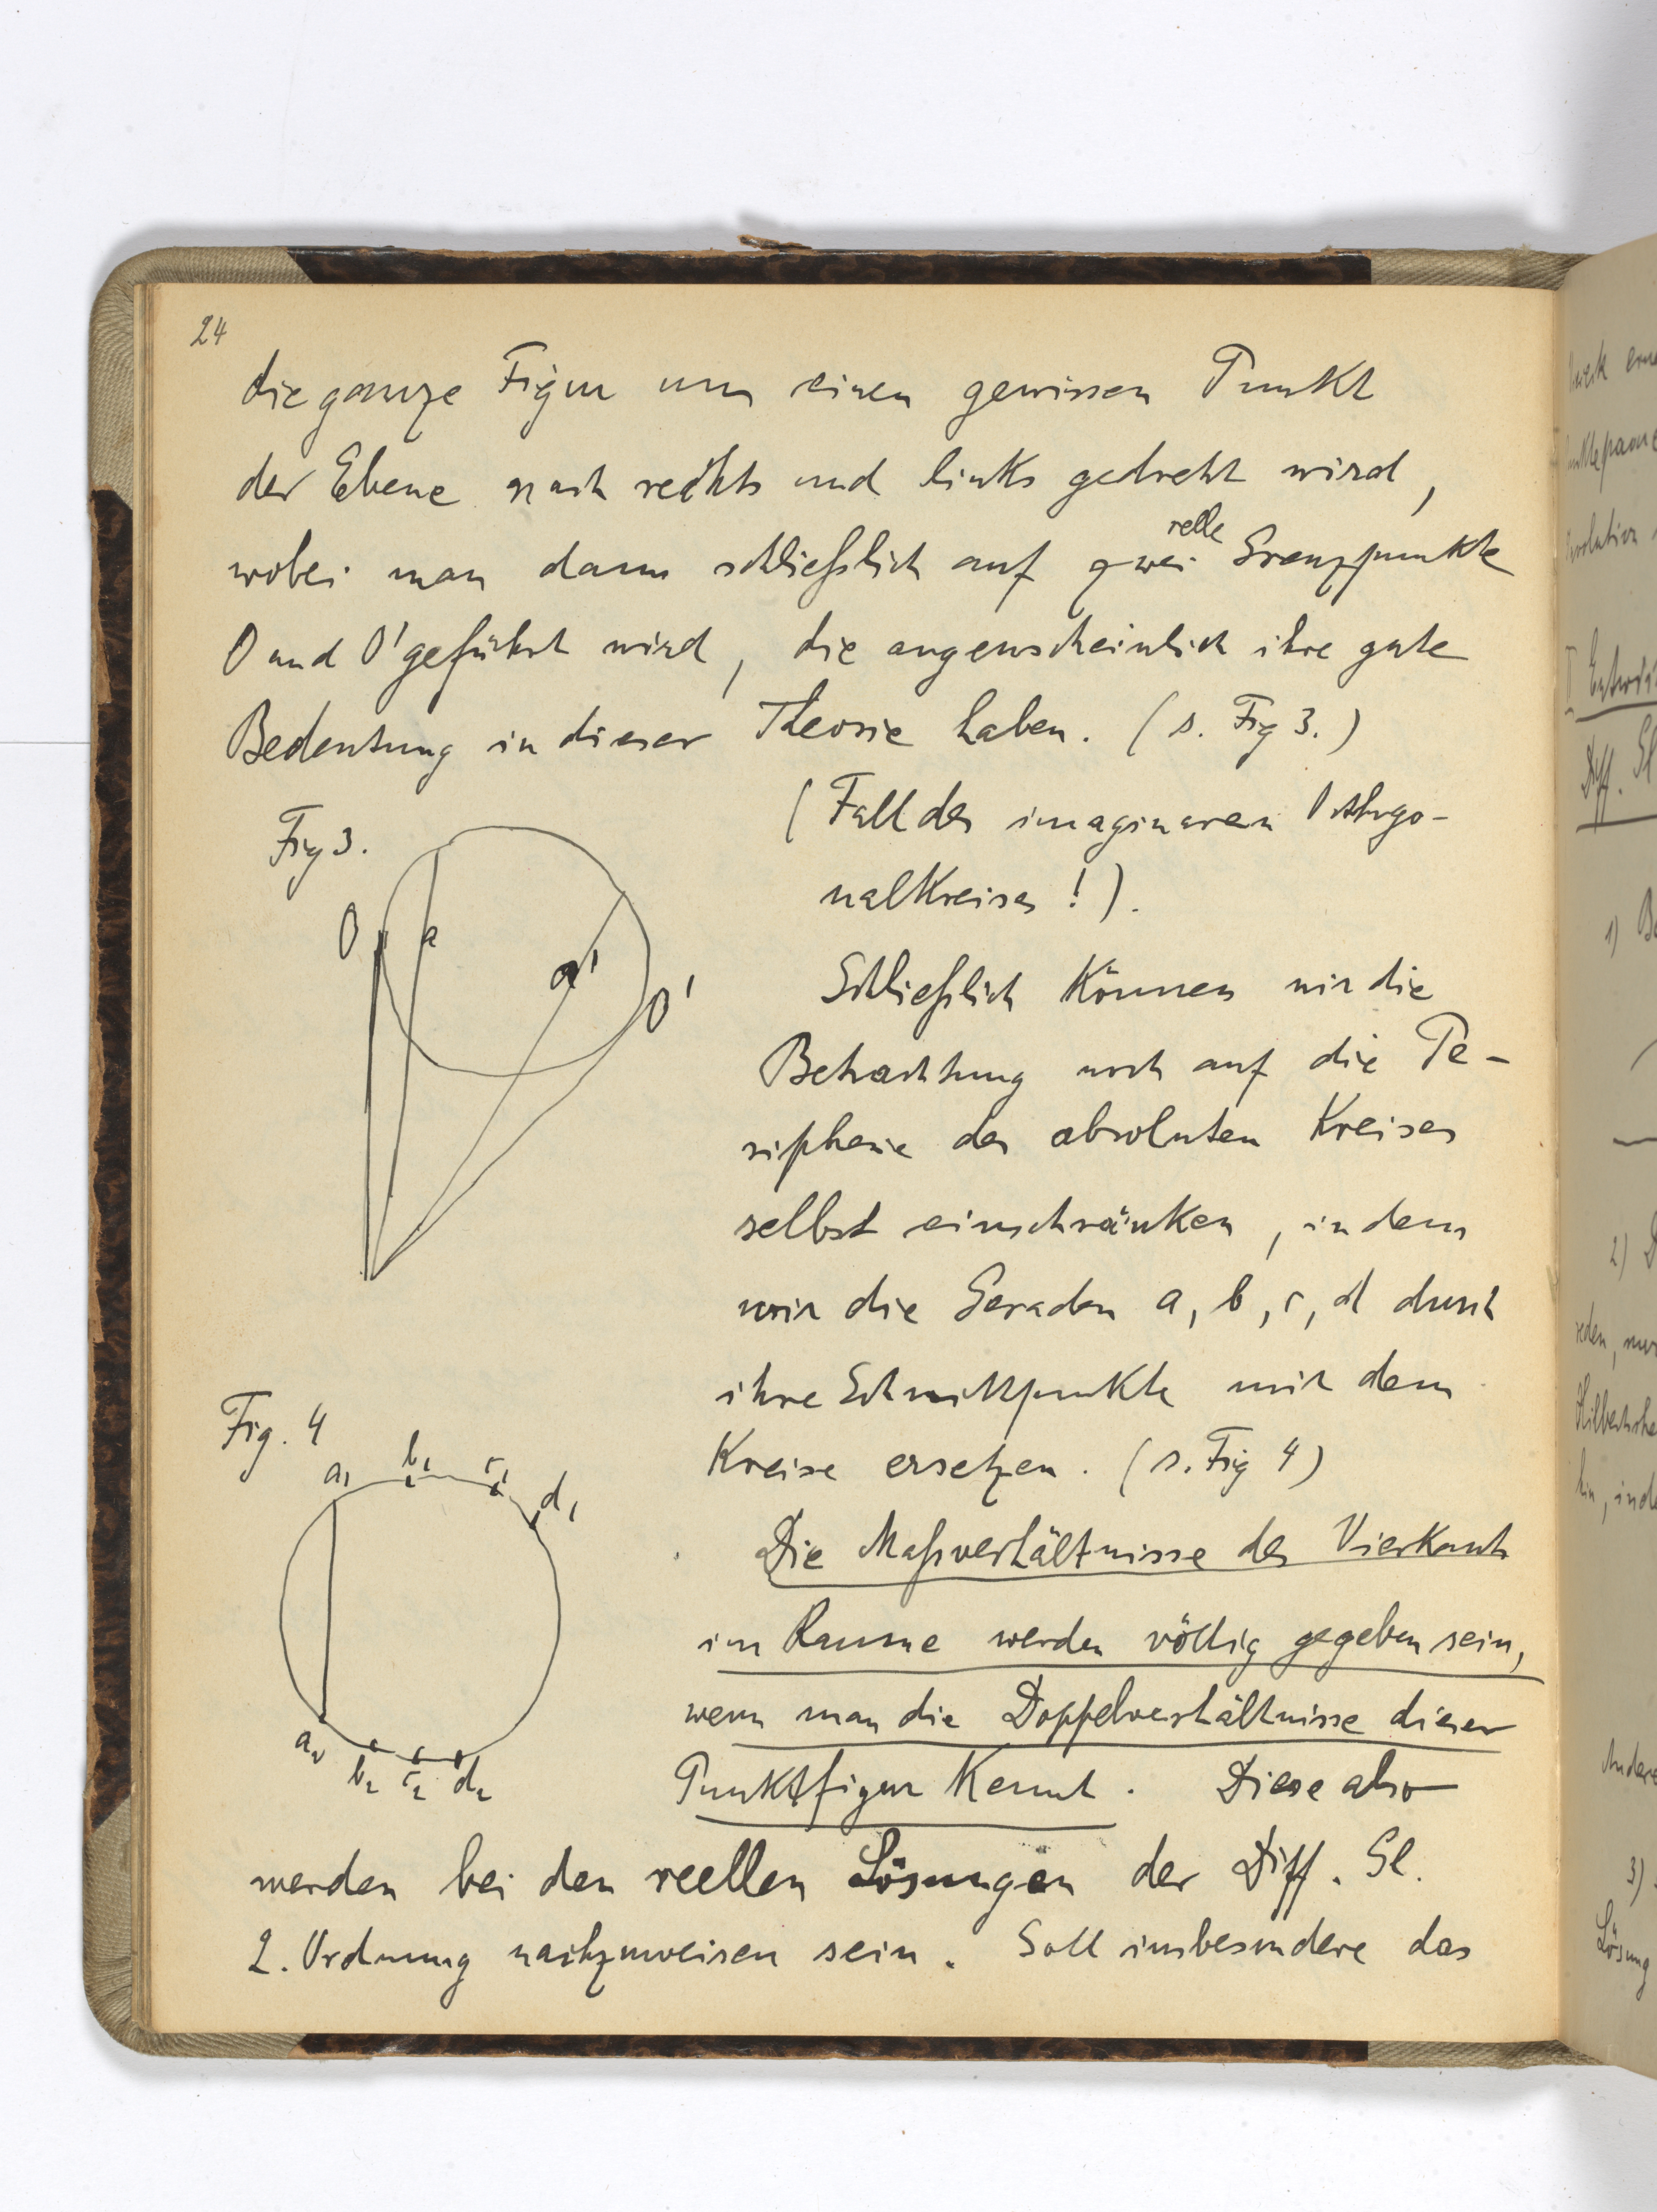 24
die ganze Figur um einen gewissen Punkt
der Ebene nach rechts und links gedreht wird,
wobei man dann schließlich auf zwei relle Grenzpunkte
O und O' geführt wird, die augenscheinlich ihre gute
Bedeutung in dieser Theorie haben. (s. Fig 3.)
(Fall des imaginären Orthogo-
nalkreises!).
Fig 3.
O
a
a'
O'
Schließlich können wir die
Betrachtung noch auf die Pe-
ripherie des absoluten Kreises
selbst einschränken, indem
wir die Geraden a, b, c, d durch
ihre Schnittpunkte mit dem
Kreise ersetzen. (s. Fig 4)
Fig. 4
a1 b1 c1 d1
a2 b2 c2 d2
Die Maßverhältnisse des Vierkants
im Raume werden völlig gegeben sein,
wenn man die Doppelverhältnisse dieser
Punktfigur kennt. Diese also
werden bei den reellen Lösungen der Diff. Gl.
2. Ordnung nachzuweisen sein. Soll insbesondere das
1)
2)
reden, nur
3)
Lösung